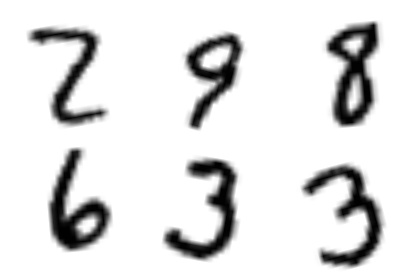 2 9 8
6 3 3